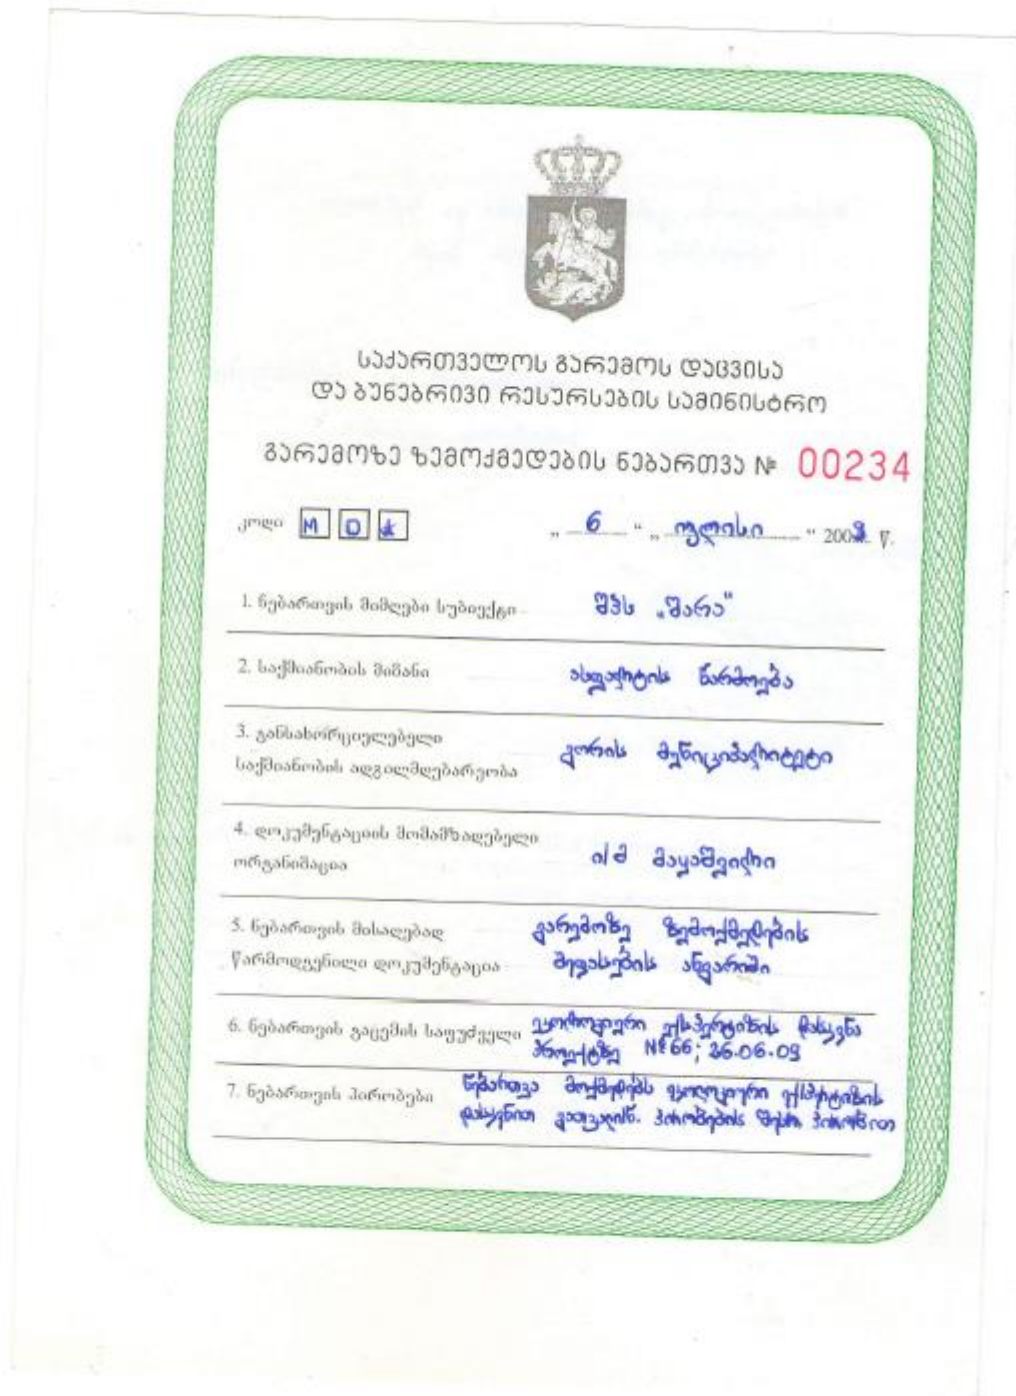 საქართველოს გარემოს დაცვისა
და ბუნებრივი რესურსების სამინისტრო
გარემოზე ზემოქმედების ნებართვა № 00234
კოდი M D
„ 6 “ „ ივლისი “ 2009 წ.
1. ნებართვის მიმღები სუბიექტი შპს „შარა“
2. საქმიანობის მიზანი ასფალტის წარმოება
3. განსახორციელებელი
საქმიანობის ადგილმდებარეობა გორის მუნიციპალიტეტი
4. დოკუმენტაციის მომამზადებელი
ორგანიზაცია ი/მ მაყაშვილი
5. ნებართვის მისაღებად გარემოზე ზემოქმედების
წარმოდგენილი დოკუმენტაცია შეფასების ანგარიში
6. ნებართვის გაცემის საფუძველი ეკოლოგიური ექსპერტიზის დასკვნა
პროექტზე №66; 26.06.09
7. ნებართვის პირობები ნებართვა მოქმედებს ეკოლოგიური ექსპერტიზის
დასკვნით გათვალისწ. პირობების შესრ. პირობით